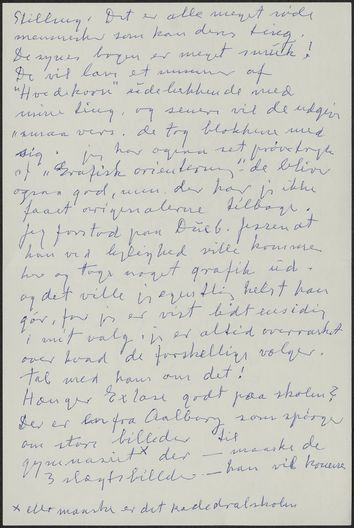 Stilling. Det er alle meget søde
mennesker som kan deres ting.
De synes bogen er meget smuk!
De vil lave et nummer af
"Hvedekorn" udelukkende med
mine ting, og senere vil de udgive
smaa vers. de tog blokkene med
sig. jeg har ogsaa set prøvetryk
af "Grafisk orientering" de bliver
ogsaa god, men der har jeg ikke
faaet originalerne tilbage.
Jeg forstod paa Jessen at
han ved lejlighed ville komme
her og tage noget grafik ud -
og det ville jeg egentlig helst han
gør, for jeg er vist lidt ensidig
i mit valg, jeg er altid overrasket
over hvad de forskellige vælger.
Tal med ham om det!
Hænger Exlase godt paa skolen?
Der er en fra Aalborg som spørger
om store billeder til
gymnasiet x der - maaske de
3 slægtsbilleder - han vil komme
x eller maaske er det Katedralskolen